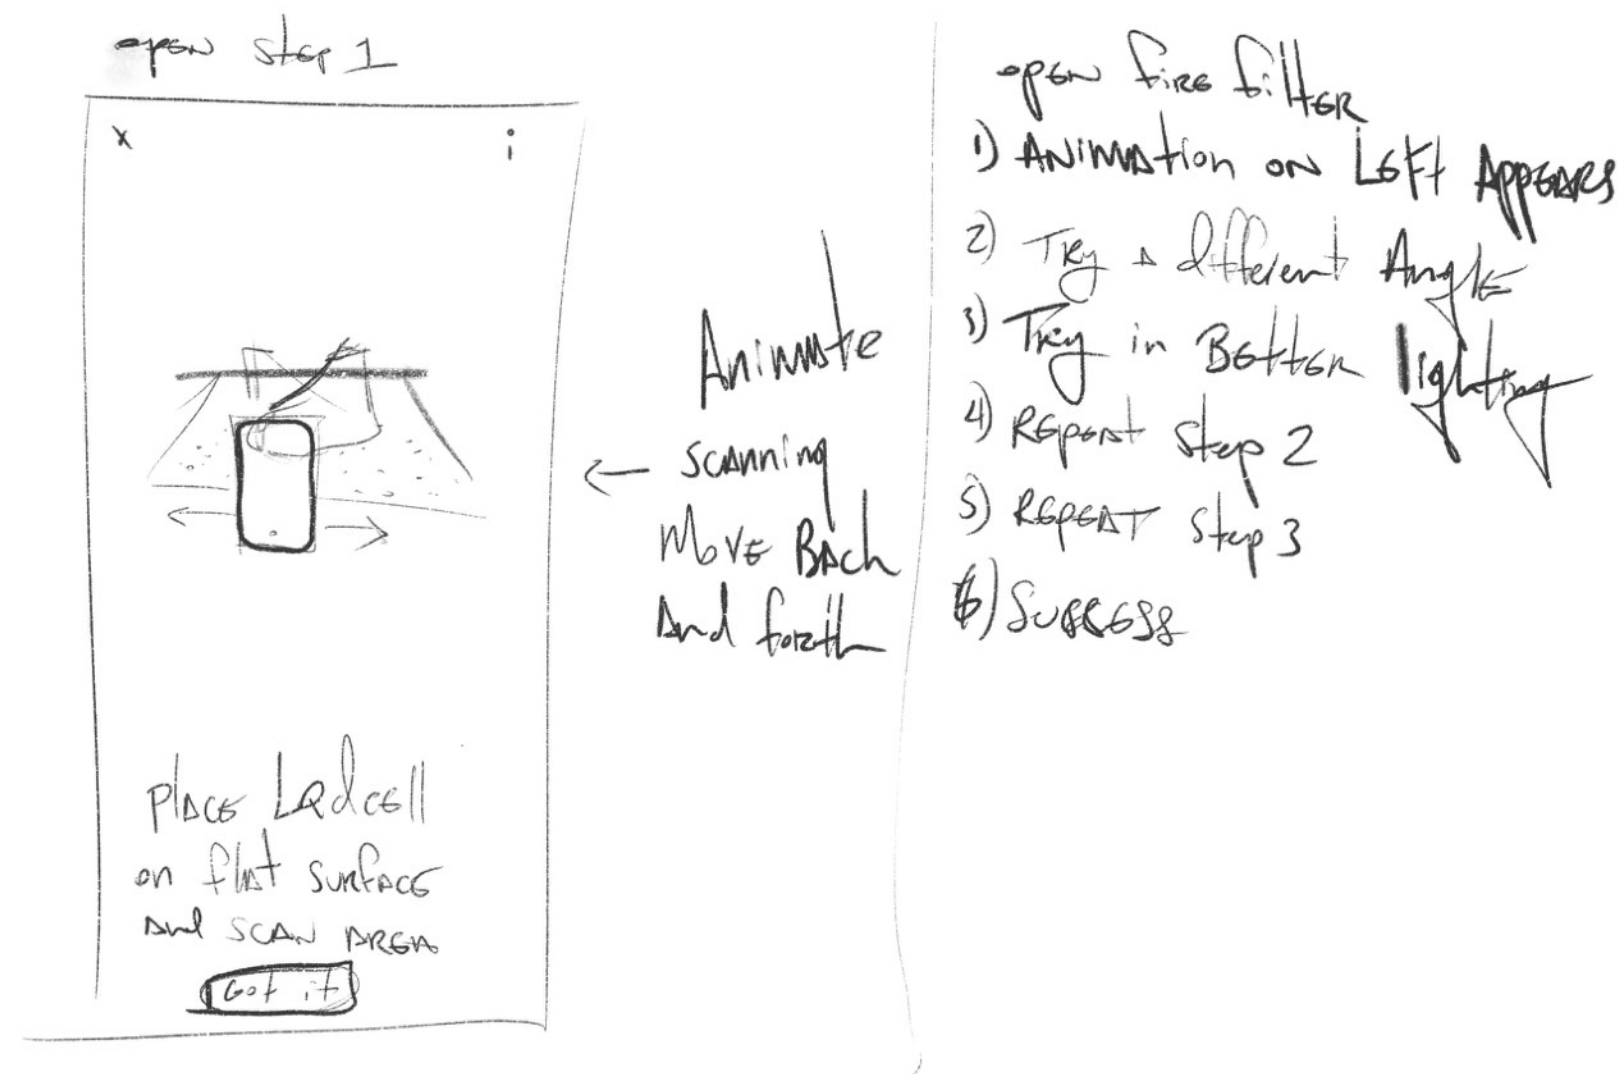 open step 1
x
i
place Ladcell
on flat surface
and scan area
Got it
Animate
← scanning
Move Back
and forth
open fire filter
1) Animation on Left Appears
2) Try a different Angle
3) Try in Better lighting
4) Repeat Step 2
5) Repeat Step 3
6) Success